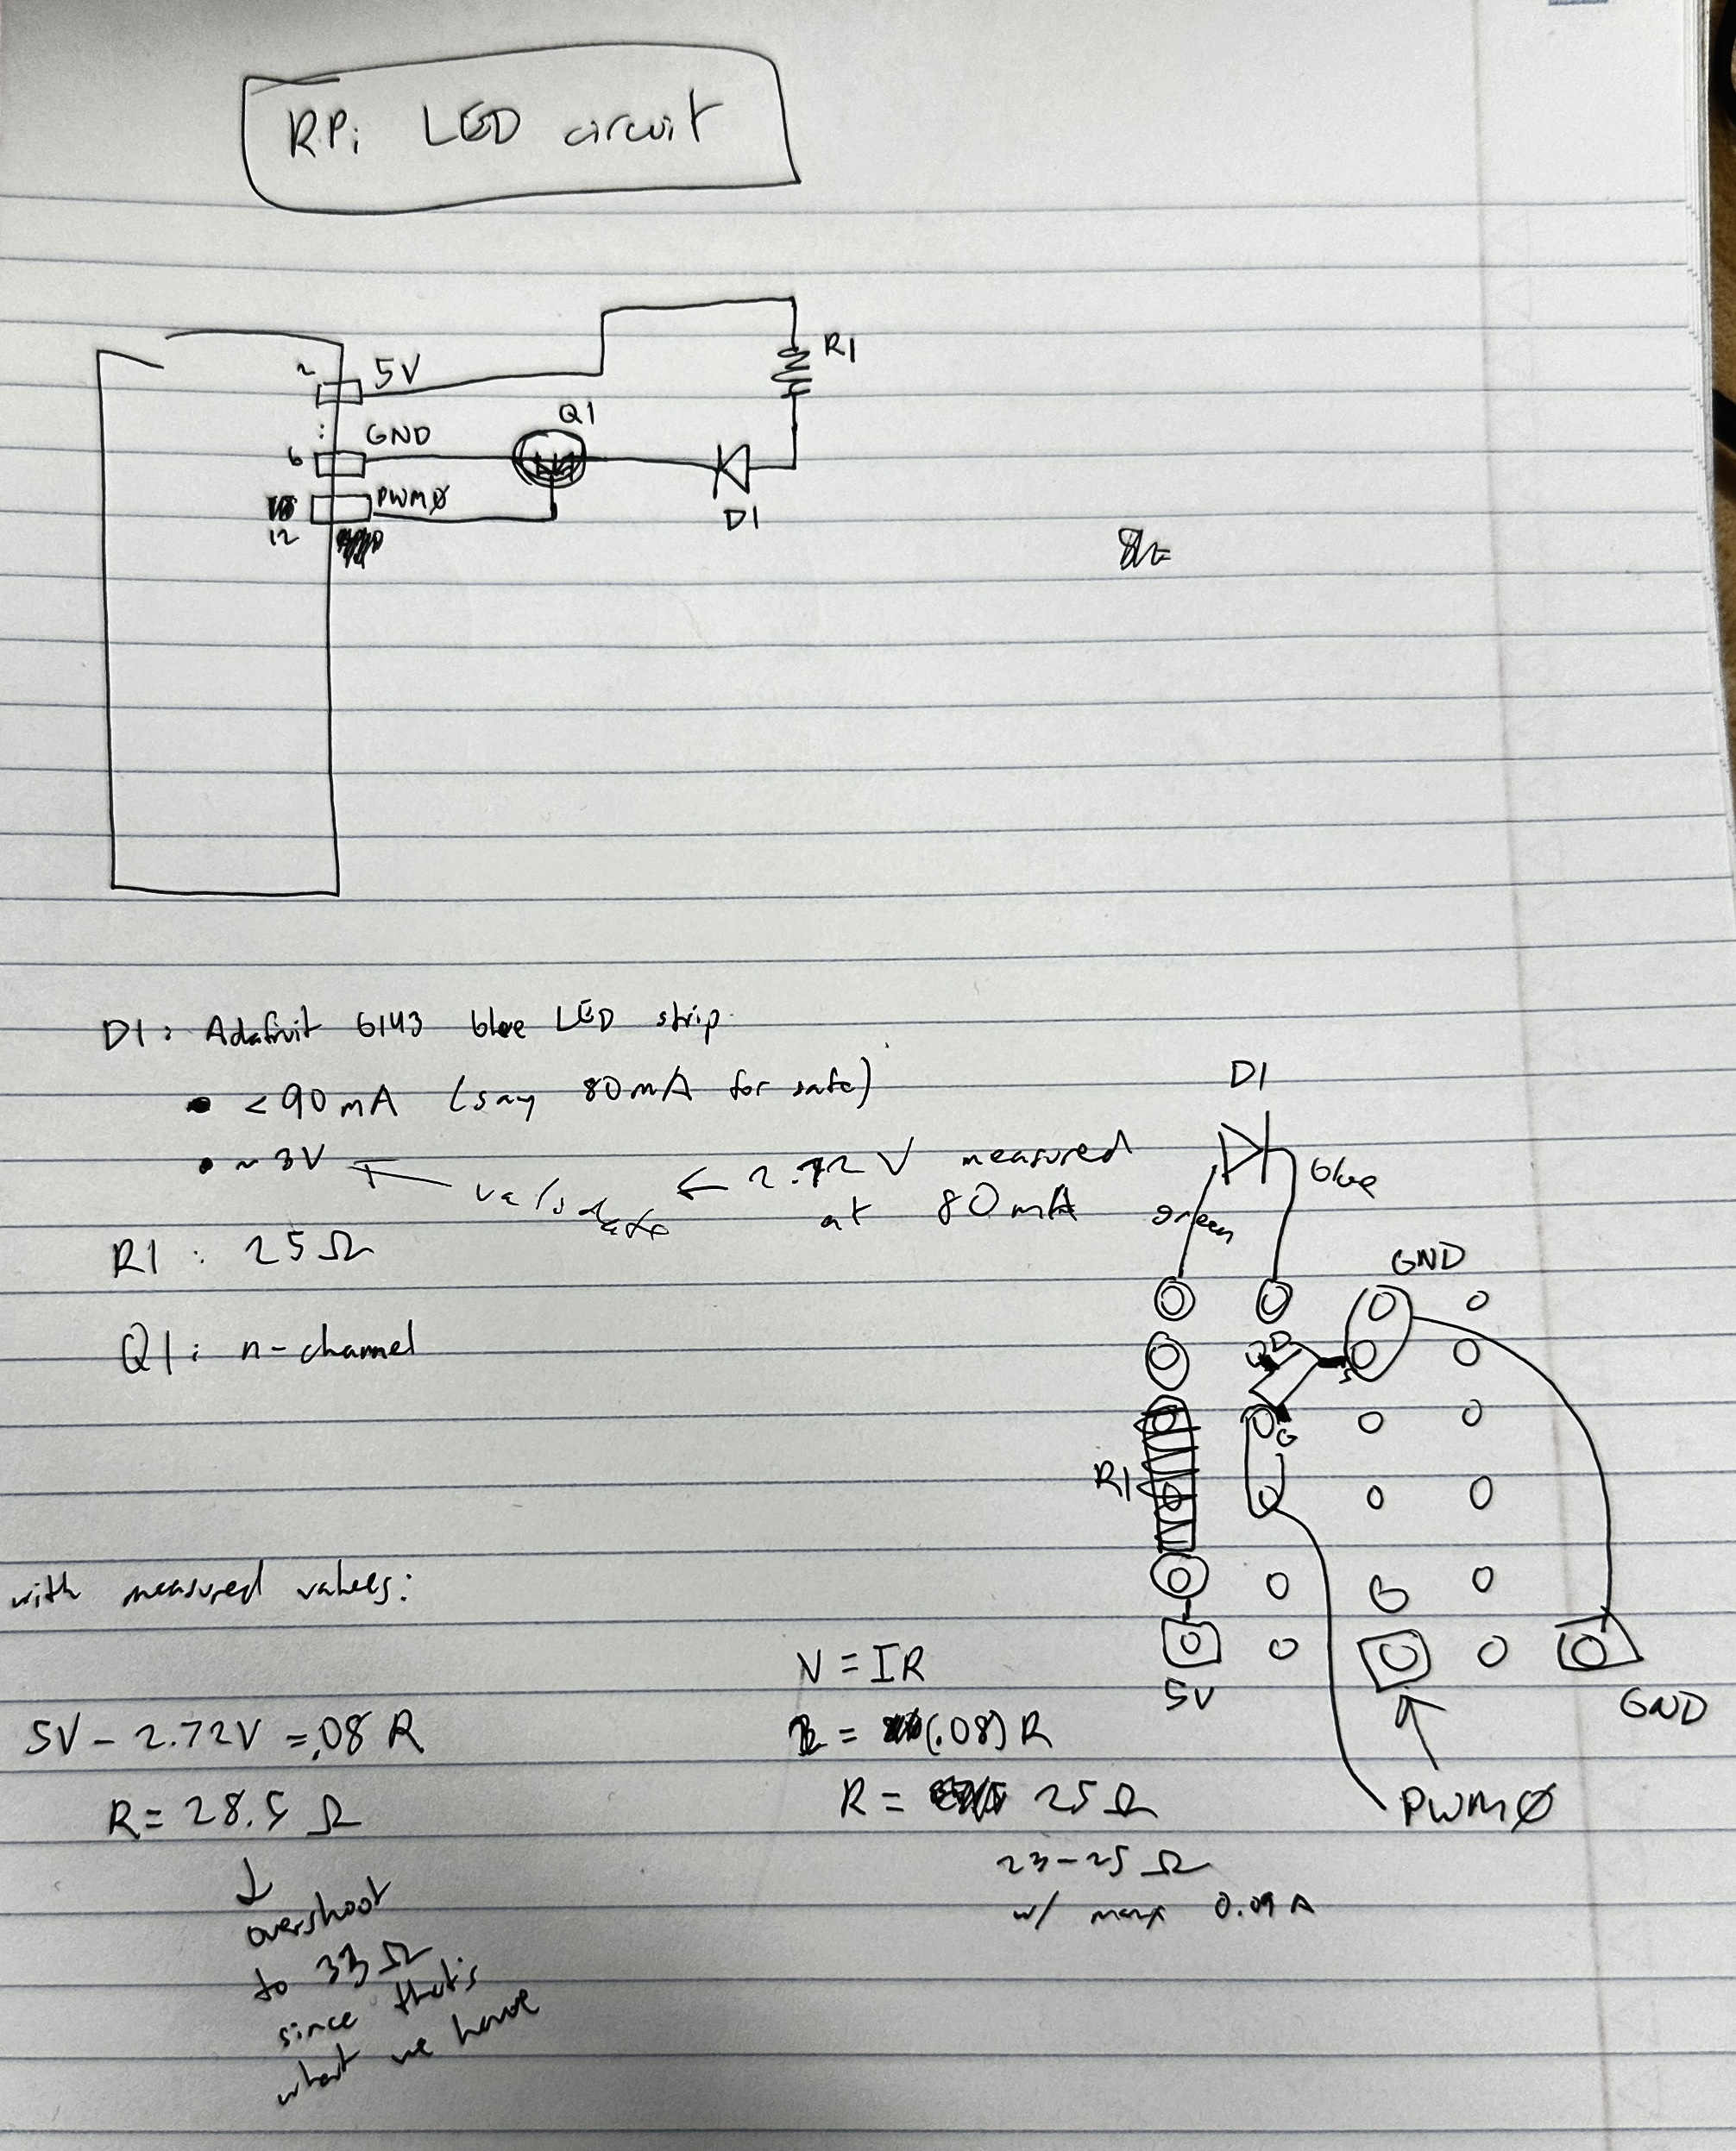 RPi LED circuit
2
5V
R1
Q1
GND
6
PWMØ
12
D1
D1: Adafruit 6143 blue LED strip
• <90mA (say 80mA for safe)
• ~3V ← ← 2.72V measured
at 80mA
R1: 25Ω
Q1: n-channel
D1
blue
green
GND
D
S
G
R1
5V
GND
PWMØ
with measured values:
5V - 2.72V = .08 R
R = 28.5 Ω
↓
overshoot
to 33Ω
since that's
what we have
V = IR
2 = (.08) R
R = 25Ω
23-25 Ω
w/ max 0.09 A